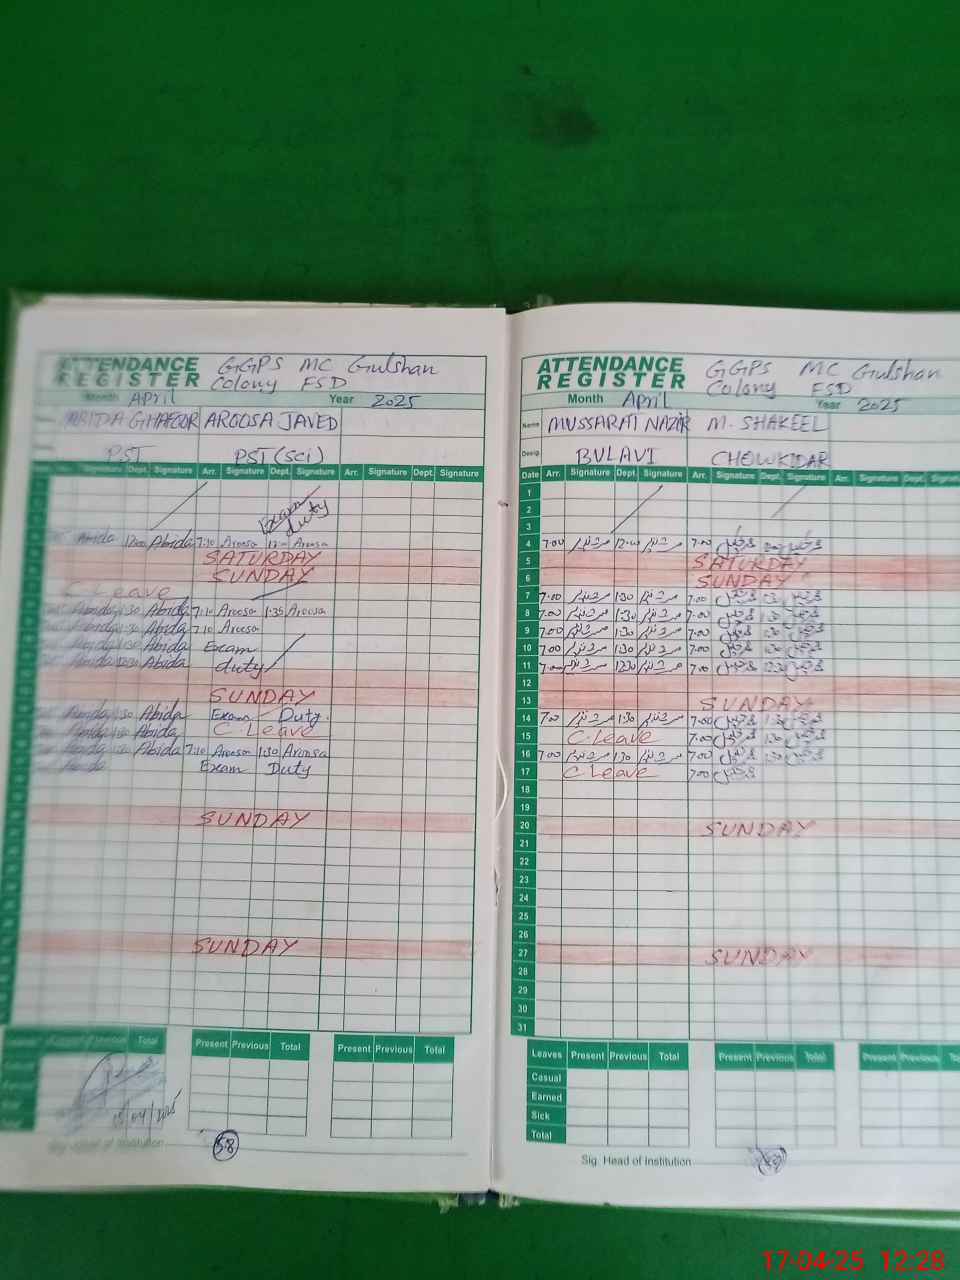 ATTENDANCE REGISTER GGPS MC Gulshan Colony FSD
Month April Year 2025
GHAFOOR AROOSA JAVED
PST PST (Sci)
Signature Dept. Signature Arr. Signature Dept. Signature Arr. Signature Dept. Signature
Exam duty
Abida 12:00 Abida 7:10 Aroosa Aroosa
SATURDAY
SUNDAY
C Leave
Abida 1:30 Abida 7:10 Aroosa 1:35 Aroosa
Abida 1:30 Abida 7:10 Aroosa
Abida 1:30 Abida Exam
Abida 12:30 Abida duty
SUNDAY
Abida 1:30 Abida Exam Duty
Abida 1:30 Abida C. Leave
Abida 1:30 Abida 7:10 Aroosa 1:30 Aroosa
Abida Exam Duty
SUNDAY
SUNDAY
Total Present Previous Total Present Previous Total
/04/2025
Sig. Head of Institution
58
ATTENDANCE REGISTER GGPS MC Gulshan Colony FSD
Month April Year 2025
Name MUSSARAT NAZIR M. SHAKEEL
Desig. BULAVI CHOWKIDAR
Date Arr. Signature Dept. Signature Arr. Signature Dept. Signature Arr. Signature Dept.
1
2
3
4 7:00 12:00 7:00
5 SATURDAY
6 SUNDAY
7 7:00 1:30 7:00
8 7:00 1:30 7:00
9 7:00 1:30 7:00 1:30
10 7:00 1:30 7:00
11 7:00 12:30 7:00 12:30
12
13 SUNDAY
14 7:00 1:30 7:00 1:30
15 C. Leave 7:00 1:30
16 7:00 1:30 7:00 1:30
17 C Leave 7:00
18
19
20 SUNDAY
21
22
23
24
25
26
27 SUNDAY
28
29
30
31
Leaves Present Previous Total Present Previous Total Present Previous
Casual
Earned
Sick
Total
Sig. Head of Institution
17-04-25 12:28